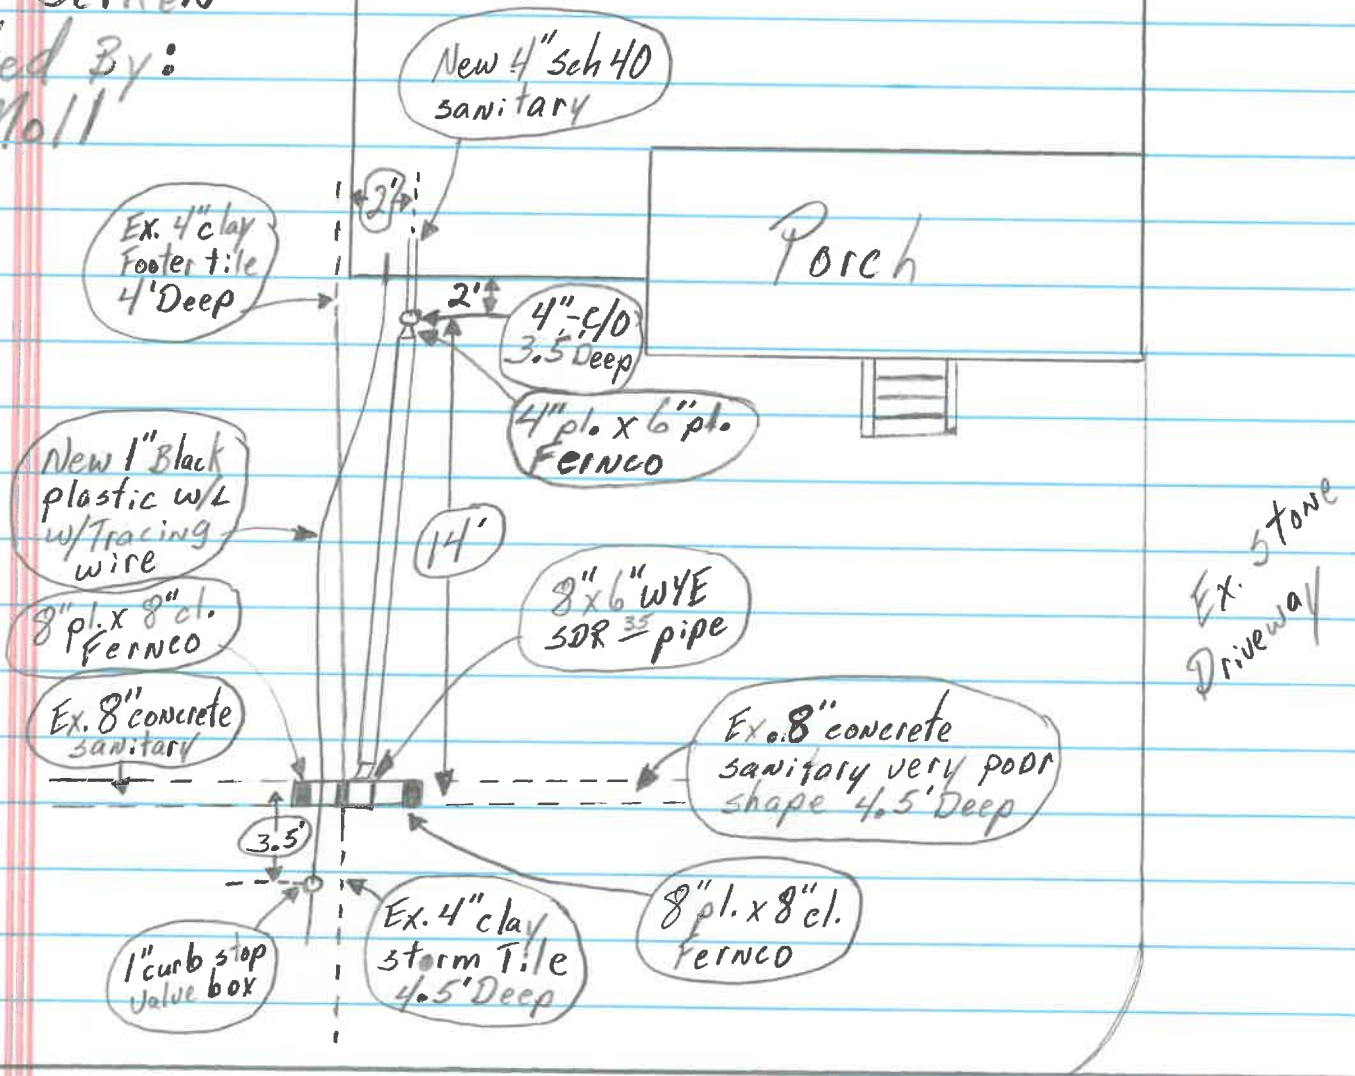 By:
New 4" sch 40
sanitary
2'
Ex. 4" clay
Footer tile
4' Deep
Porch
2'
4"-c/o
3.5' Deep
4" pl. x 6" pl.
Fernco
New 1" Black
plastic w/L
w/Tracing
wire
14'
8" x 6" WYE
SDR 35 pipe
Ex. Stone
Driveway
8" pl. x 8" cl.
Fernco
Ex. 8" concrete
sanitary
Ex. 8" concrete
sanitary very poor
shape 4.5' Deep
3.5'
1" curb stop
valve box
Ex. 4" clay
storm Tile
4.5' Deep
8" pl. x 8" cl.
Fernco